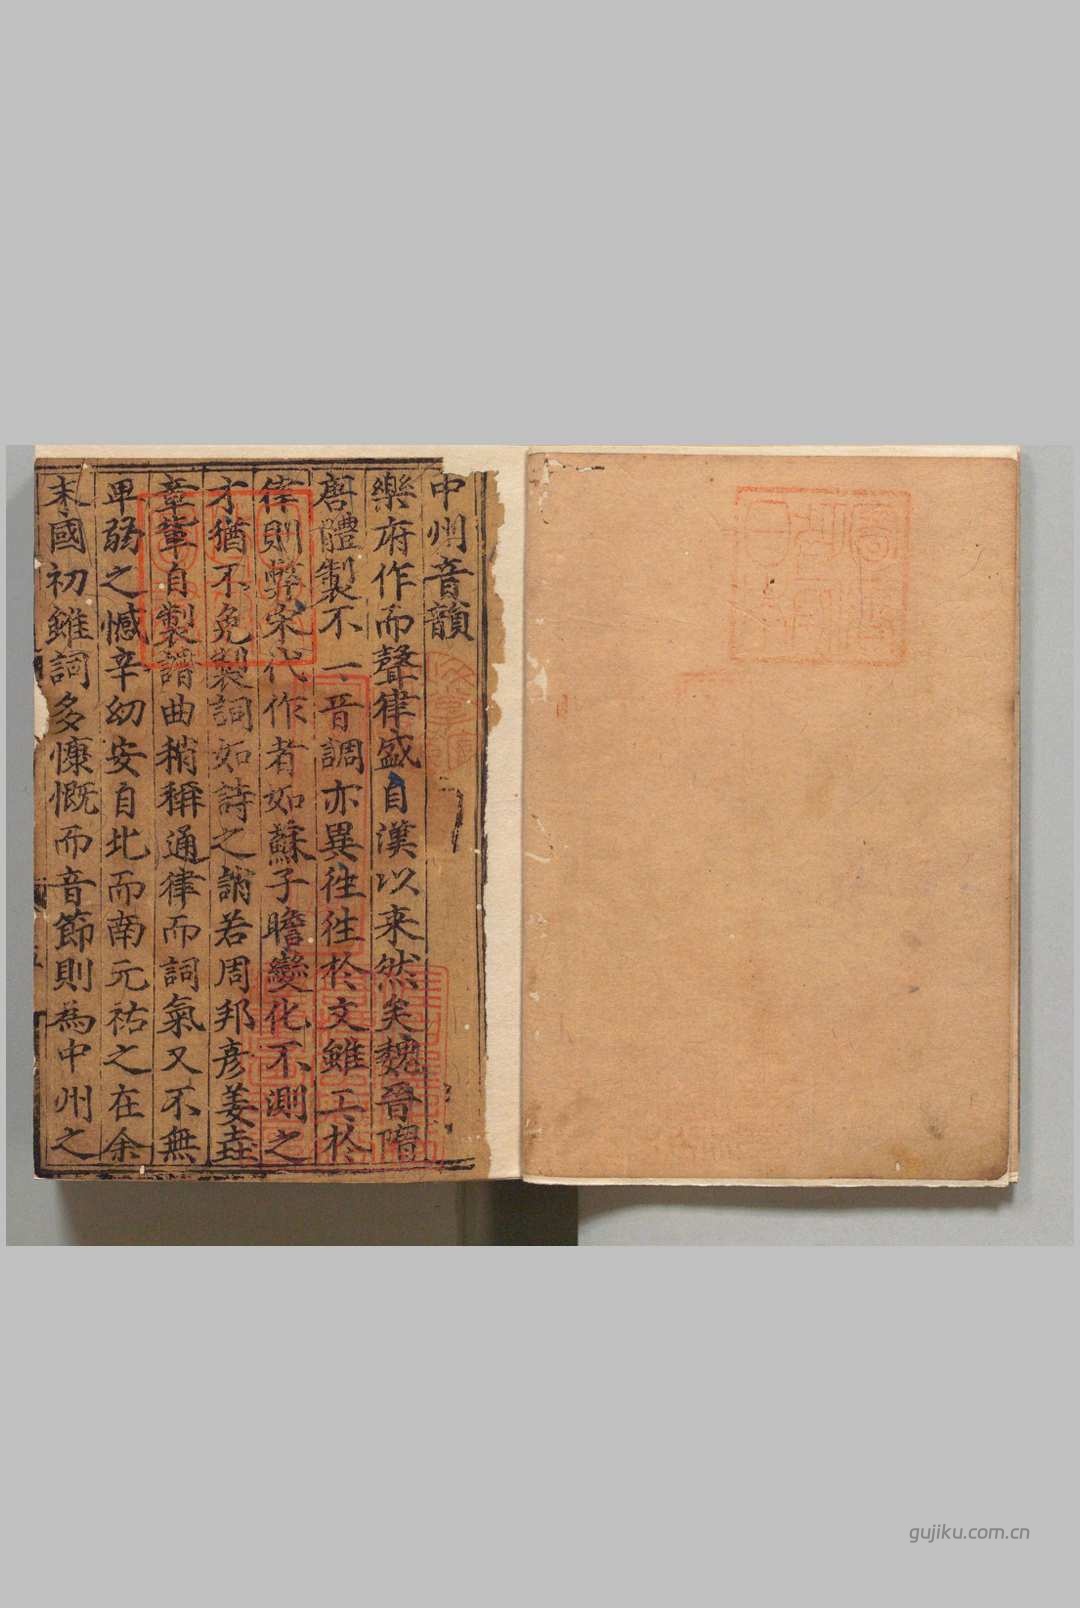 中州音韻
樂府作而聲律盛自漢以来然矣魏晉隋
唐體製不一音調亦異徃徃於文雖工於
律則弊宋代作者如蘇子瞻變化不測之
才猶不免製詞如詩之誚若周邦彦姜尭
章軰自製譜曲稍稱通律而詞氣又不無
卑弱之憾辛幼安自北而南元祐之在余
末國初雖詞多慷慨而音節則為中州之
gujiku.com.cn